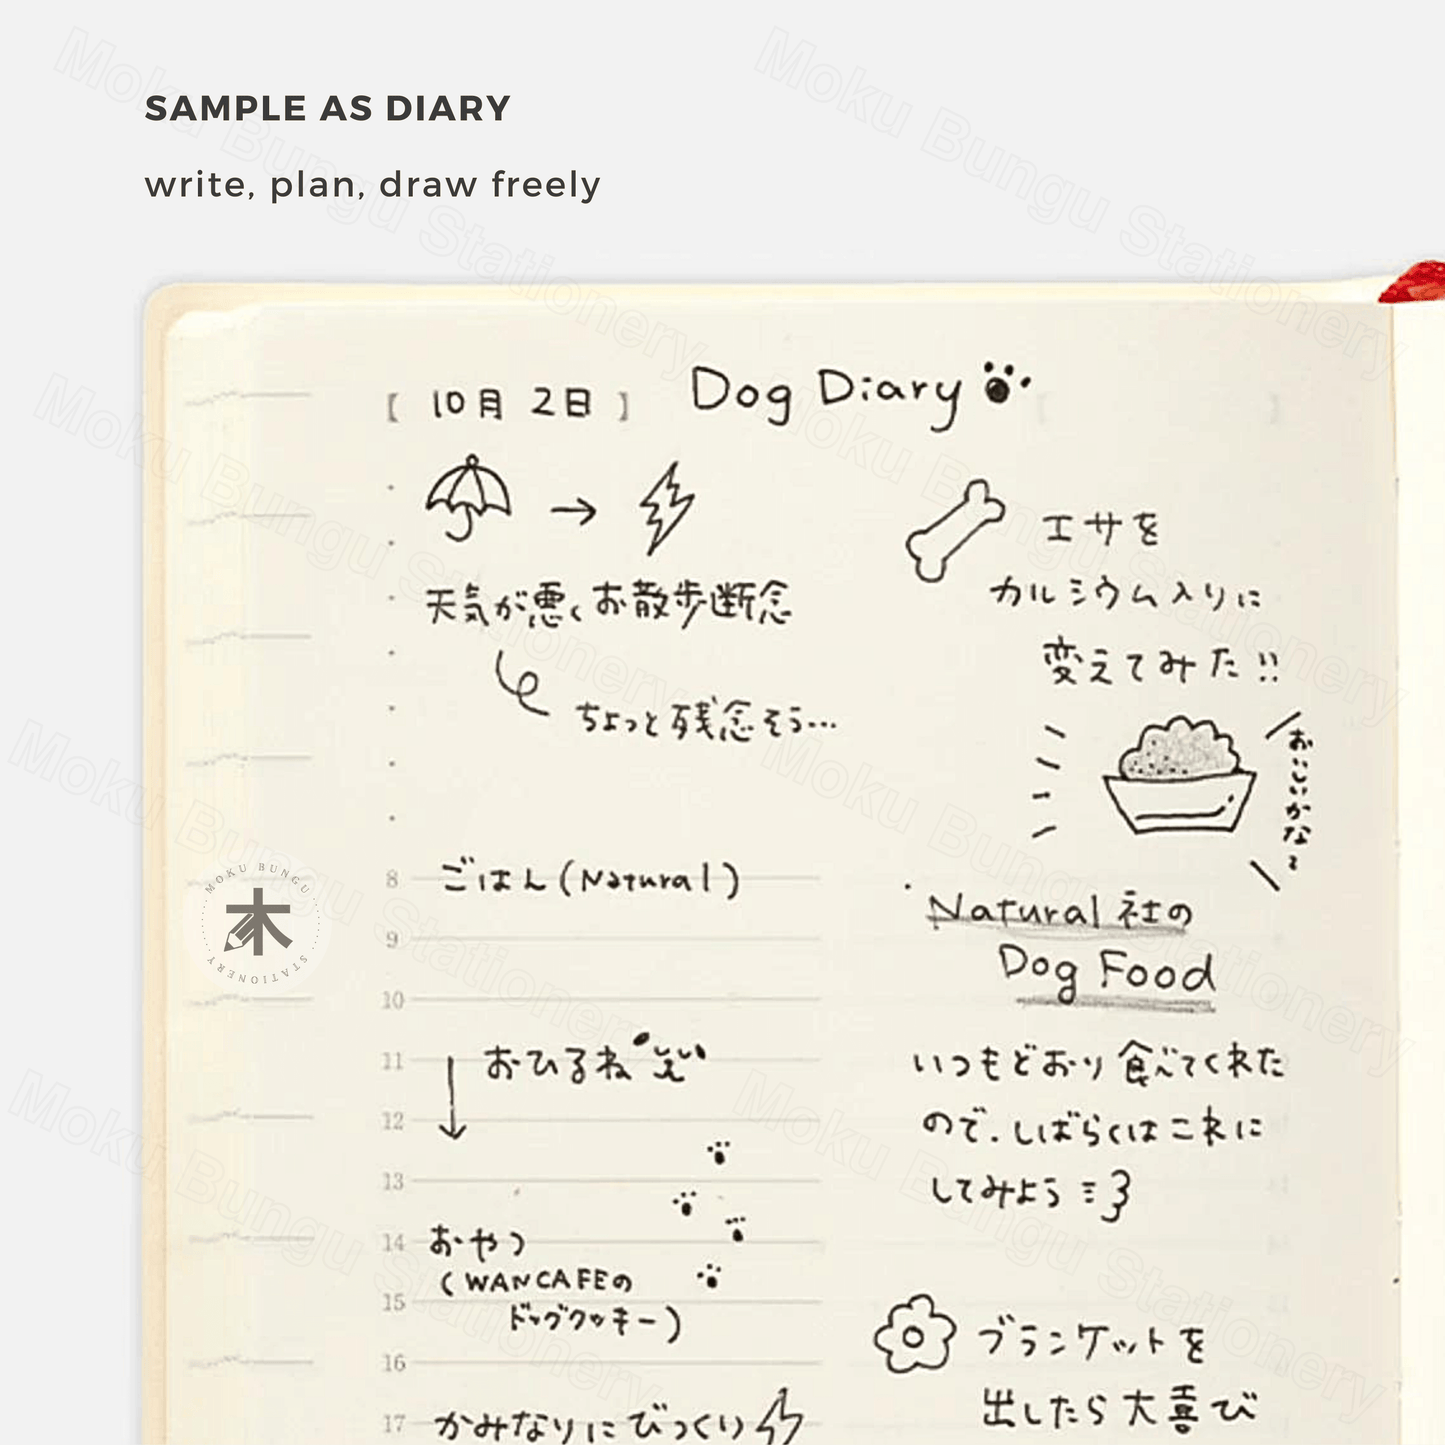 SAMPLE AS DIARY
write, plan, draw freely
[ 10月 2日 ] Dog Diary
天気が悪くお散歩断念
ちょっと残念そう…
8 ごはん(Natural)
9
10
11 おひるね
12
13
14 おやつ
(WANCAFEの
15 ドッグクッキー)
16
17 かみなりにびっくり
エサを
カルシウム入りに
変えてみた!!
おいしいかな?
Natural 社の
Dog Food
いつもどおり食べてくれた
ので、しばらくはこれに
してみよう
ブランケットを
出したら大喜び
MOKU BUNGU
木
STATIONERY
Moku Bungu Stationery